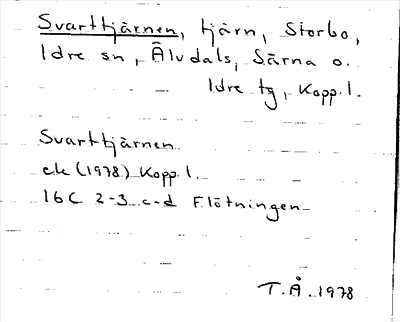 Svarttjärnen, tjärn, Storbo,
Idre sn, Älvdals, Särna o.
Idre tg, Kopp. l.
Svarttjärnen
ek (1978) Kopp. l.
16C 2-3 c-d Flötningen
T.Å. 1978